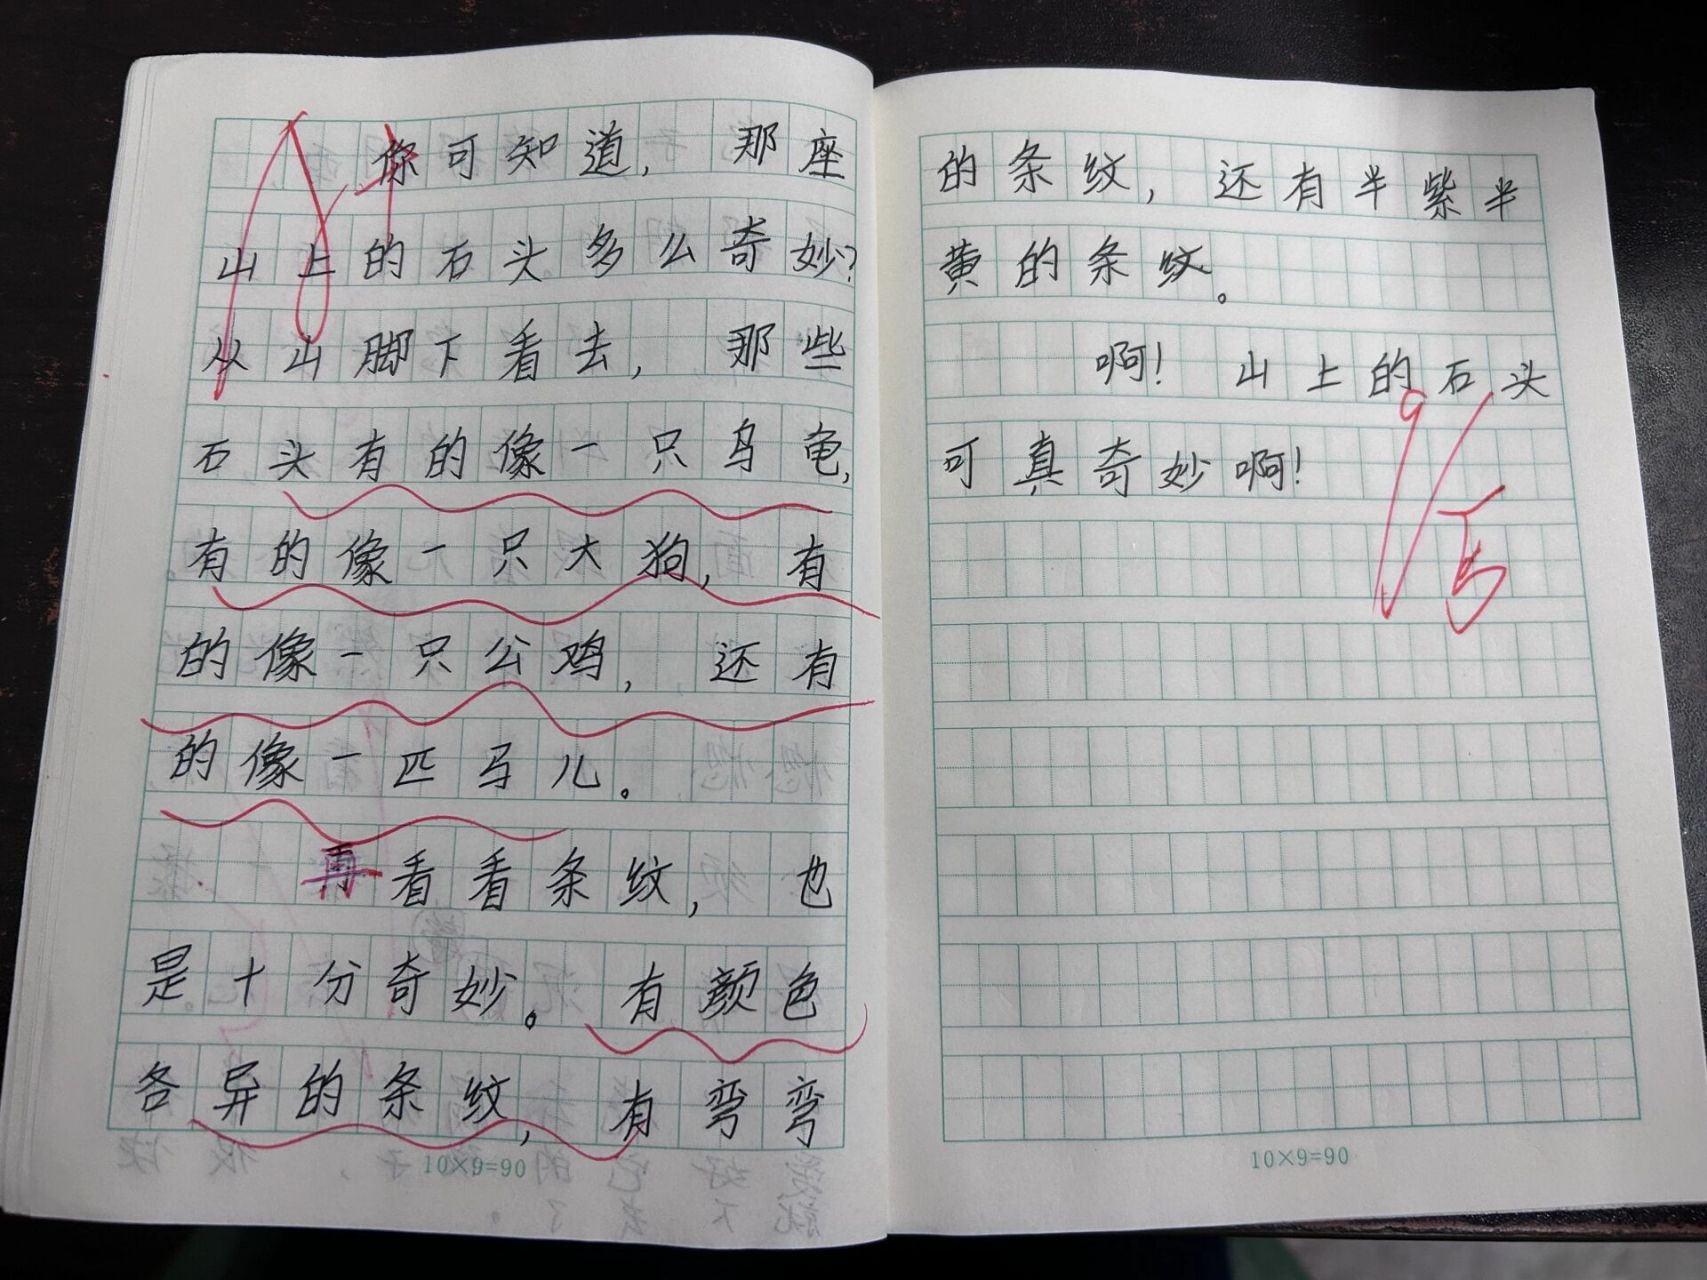 你可知道，那座
山上的石头多么奇妙？
从山脚下看去，那些
石头有的像一只乌龟，
有的像一只大狗，有
的像一只公鸡，还有
的像一匹马儿。
再看看条纹，也
是十分奇妙。有颜色
各异的条纹，有弯弯
10×9=90
的条纹，还有半紫半
黄的条纹。
啊！山上的石头
可真奇妙啊！
10×9=90